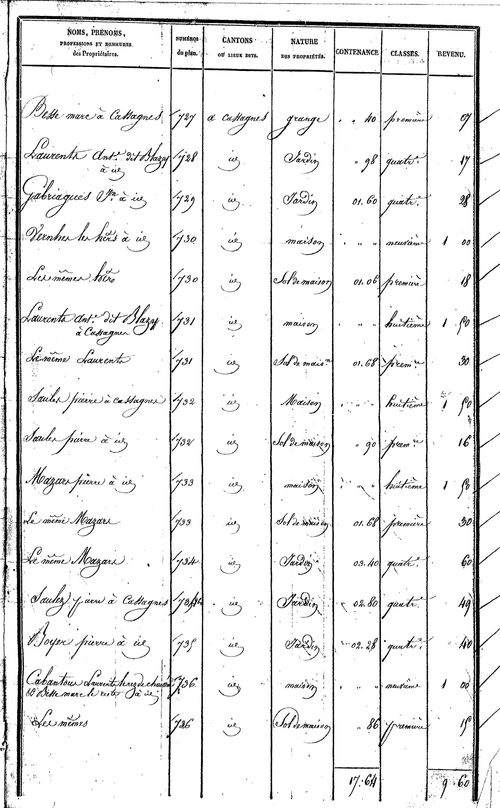 NOMS, PRÉNOMS, PROFESSIONS ET DEMEURES des Propriétaires. NUMÉROS du plan. CANTONS OU LIEUX DITS. NATURE DES PROPRIÉTÉS. CONTENANCE CLASSES. REVENU.
Besse marc à Cassagnes 727 a cassagnes grange " " 40 première 07
Laurents Ant.e dit Blazy 728 id Jardin " 98 quatr.e 17
à id
Gabriagues à id 729 id Jardin 01.60 quatr.e 28
Vernhes les hérs à id 730 id maison " " " neuvième 1 00
Les mêmes hérs 730 id Sol de maison 01.06 première 18
Laurents ant.e dit Blazy 731 id maison " " huitième 1 50
à Cassagnes
Le même Laurents 731 id Sol de mais.n 01.68 prem.re 30
Saules pierre à cassagnes 732 id Maison " " " huitième 1 50
Saules pierre à id 732 id Sol de maison " 90 prem.re 16
Mazars pierre à id 733 id maison " " " huitième 1 50
Le même Mazars 733 id Sol de maison 01.68 première 30
Le même Mazars 734 id Jardin 03.40 quatr.e 60
Saules pierre à Cassagnes id Jardin 02.80 quatr.e 49
Boyer pierre à id 735 id Jardin 02.28 quatr.e 40
Cabantous Laurents 736 id maison " " " neuvième 1 00
Besse marc à id
Les mêmes 736 id Sol de maison " 86 première 15
17.64 9.60